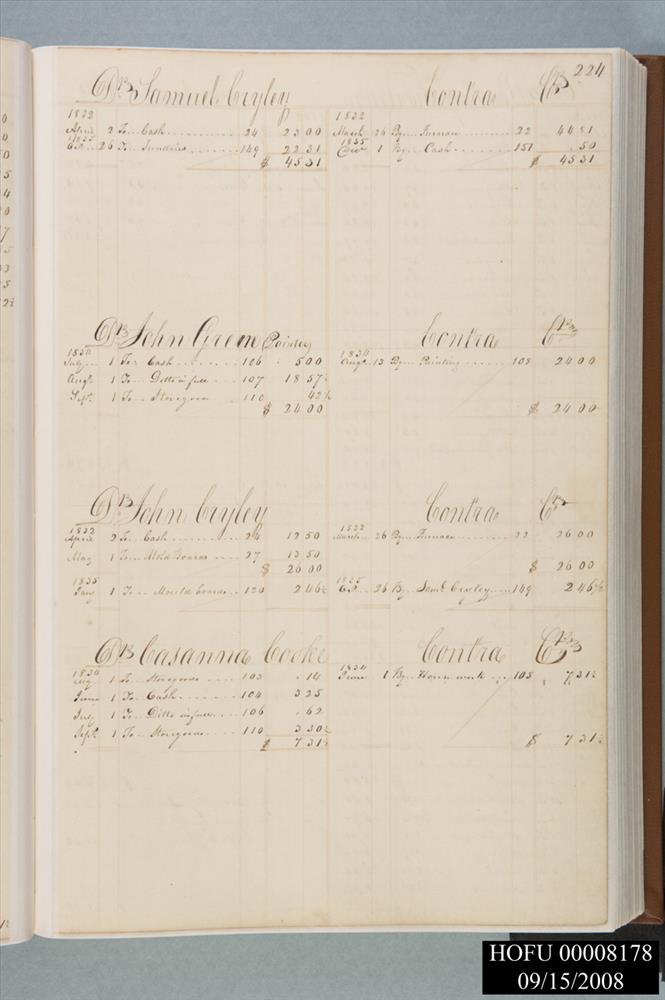 224
Dr Samuel Cryley Contra Cr
1832 1832
April 2 To Cash 24 23 00 March 26 By Furnace 22 44 81
1835 1835
26 To Sundries 149 22 31 1 By Cash 151 .50
$ 45 31 $ 45 31
Dr John Green Painter Contra Cr
1834 1834
July 1 To Cash 106 5 00 Augt 13 By Painting 108 24 00
Augt 1 To Ditto in full 107 18 57½
Sept 1 To Storegoods 110 42½
$ 24 00 $ 24 00
Dr John Cryley Contra Cr
1832 1832
April 2 To Cash 24 12 50 March 26 By Furnace 22 26 00
May 1 To Mold Boards 27 13 50
$ 26 00 $ 26 00
1835 1835
Jany 1 To Mould boards 120 2 46½ 26 By Saml Cryley 149 2 46½
Dr Casanna Cooke Contra Cr
1834 1834
1 To Storegoods 103 .14 June 1 By House work 105 7 31½
June 1 To Cash 104 3 25
July 1 To Ditto in full 106 .62
Sept 1 To Storegoods 110 3 30½
$ 7 31½ $ 7 31½
HOFU 00008178
09/15/2008